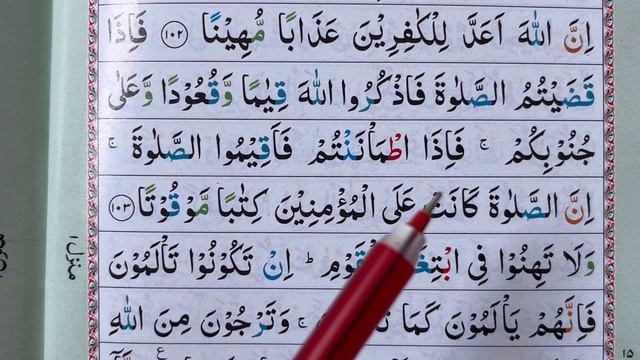 اِنَّ اللّٰهَ اَعَدَّ لِلْكٰفِرِيْنَ عَذَابًا مُّهِيْنًا ﴿۱۰۲﴾ فَاِذَا
قَضَيْتُمُ الصَّلٰوةَ فَاذْكُرُوا اللّٰهَ قِيٰمًا وَّقُعُوْدًا وَّعَلٰى
جُنُوْبِكُمْ ۚ فَاِذَا اطْمَاْنَنْتُمْ فَاَقِيْمُوا الصَّلٰوةَ ۚ
اِنَّ الصَّلٰوةَ كَانَتْ عَلَى الْمُؤْمِنِيْنَ كِتٰبًا مَّوْقُوْتًا ﴿۱۰۳﴾
وَلَا تَهِنُوْا فِى الْقَوْمِ ؕ اِنْ تَكُوْنُوْا تَاْلَمُوْنَ
فَاِنَّهُمْ يَاْلَمُوْنَ كَمَا ۚ وَتَرْجُوْنَ مِنَ اللّٰهِ
منزل ۱
۱۵